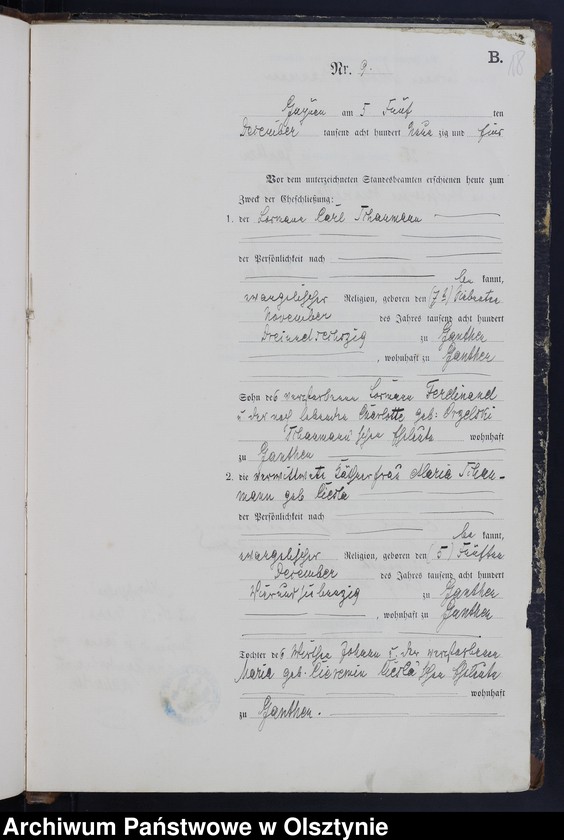 B.
18
Nr. 9.
am 5 Fünf ten
December tausend acht hundert Neun zig und
Vor dem unterzeichneten Standesbeamten erschienen heute zum
Zweck der Eheschließung:
1. der Losmann Carl Thaumann
der Persönlichkeit nach
be kannt,
evangelischer Religion, geboren den (7t) Siebenten
November des Jahres tausend acht hundert
zu Ganthen
, wohnhaft zu Ganthen
Sohn des verstorbenen Losmann Ferdinand
u der noch lebenden Charlotte geb: Orzelski
Thaumann'schen Eheleute wohnhaft
zu Ganthen
2. die verwittwete Käthnerfrau Maria Thau-
mann geb
der Persönlichkeit nach
be kannt,
evangelischer Religion, geboren den (5) Fünften
December des Jahres tausend acht hundert
Vierundsiebenzig zu Ganthen
, wohnhaft zu Ganthen
Tochter des Wirthen Johann u. der verstorbenen
Maria geb. schen Eheleute
wohnhaft
zu Ganthen.
Archiwum Państwowe w Olsztynie